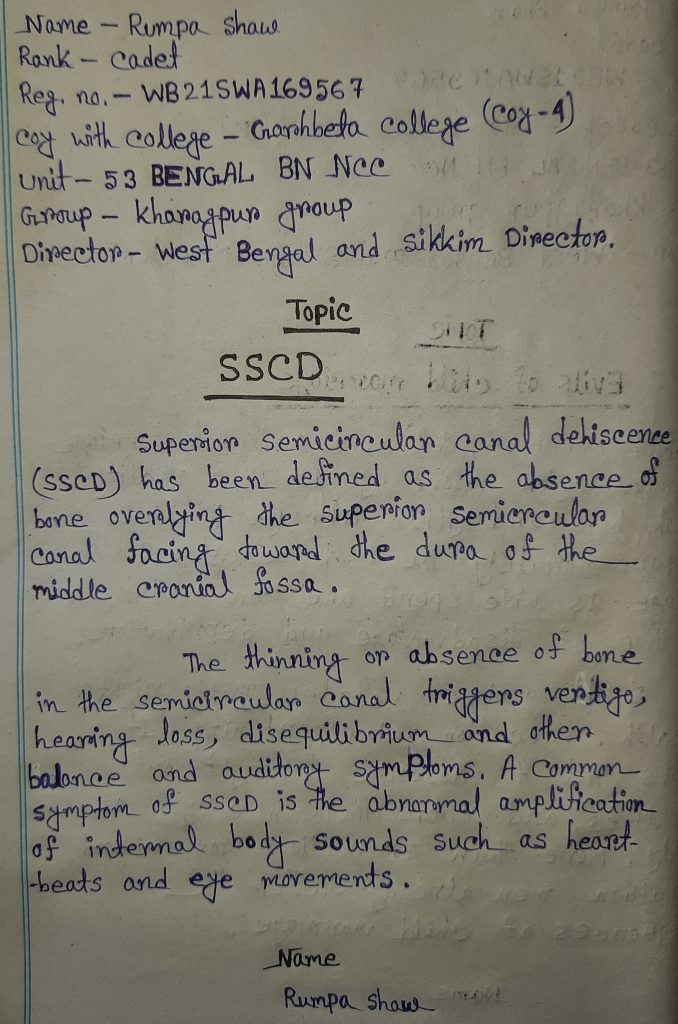 Name - Rumpa Shaw
Rank - Cadet
Reg. no. - WB21SWA169567
Coy with college - Garhbeta college (coy-4)
Unit - 53 BENGAL BN NCC
Group - Kharagpur group
Director - West Bengal and Sikkim Director.
Topic
SSCD
Superior semicircular canal dehiscence
(SSCD) has been defined as the absence of
bone overlying the superior semicrcular
canal facing toward the dura of the
middle cranial fossa.
The thinning or absence of bone
in the semicircular canal triggers vertigo,
hearing loss, disequilibrium and other
balance and auditory symptoms. A common
symptom of SSCD is the abnormal amplification
of internal body sounds such as heart-
-beats and eye movements.
Name
Rumpa Shaw